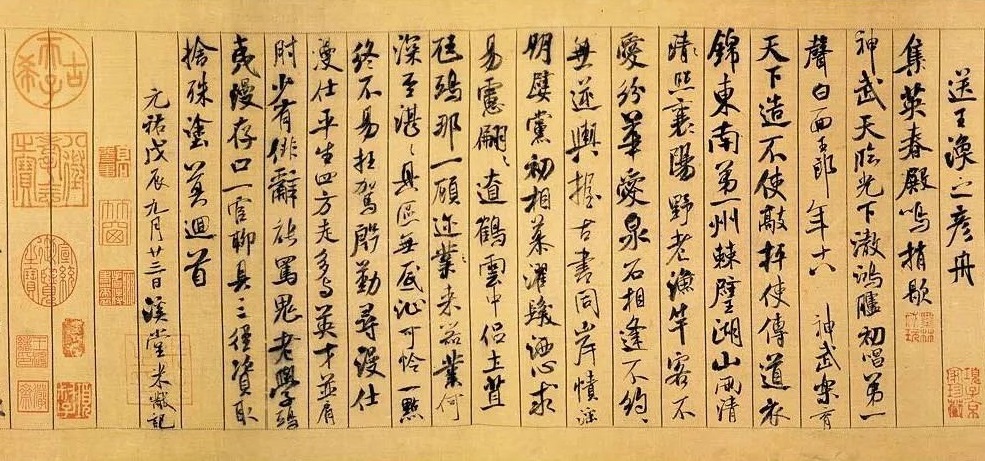 送王渙之彥舟
集英春殿鳴捎歇
神武天臨光下澈鴻臚初唱第一
聲白面王郎年十八神武樂育
天下造不使敲枰使傳道衣
錦東南第一州棘璧湖山兩清
晴照襄陽野老漁竿客不
愛紛華愛泉石相逢不約約
無逆輿握古書同岸幘淫
朋嬖黨初相慕濯髮洒心求
易慮翩翩遼鶴雲中侶土苴
尫鴟那一顧邇業來器業何
深至湛湛具區無底沚可憐一點
終不易枉駕殷勤尋漫仕
漫仕平生四方走多與英才並肩
肘少有俳辭能罵鬼老學鴟
夷漫存口一官聊具三徑資取
捨殊塗莫迴首
元祐戊辰九月廿三日溪堂米黻記
項子京家珍藏
古希天子
宣統御覽之寶